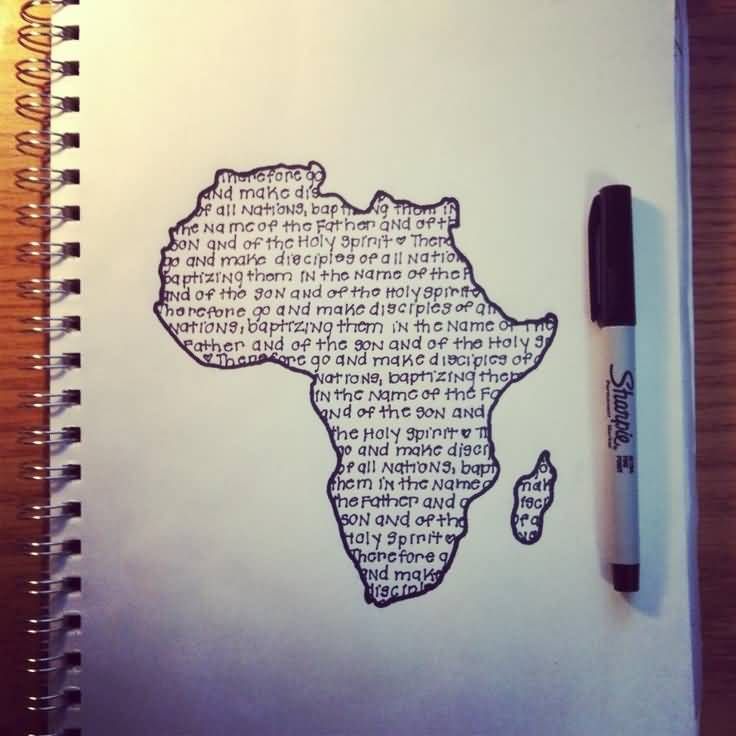 Therefore go
and make dis
of all Nations, baptizing them in
the Name of the Father and of th
Son and of the Holy Spirit ♥ There
go and make disciples of all Nation
baptizing them in the Name of the F
and of the Son and of the Holy Spirit
Therefore go and make disciples of all
Nations, baptizing them in the Name of the
Father and of the Son and of the Holy S
♥ Therefore go and make disciples of a
Nations, baptizing them
in the Name of the Fa
and of the Son and
the Holy Spirit ♥ Th
go and make discip
of all Nations, bapt
them in the Name o
the Father and o
Son and of the
Holy Spirit ♥
Therefore g
and make
disciple
go
mak
disci
of a
Sharpie